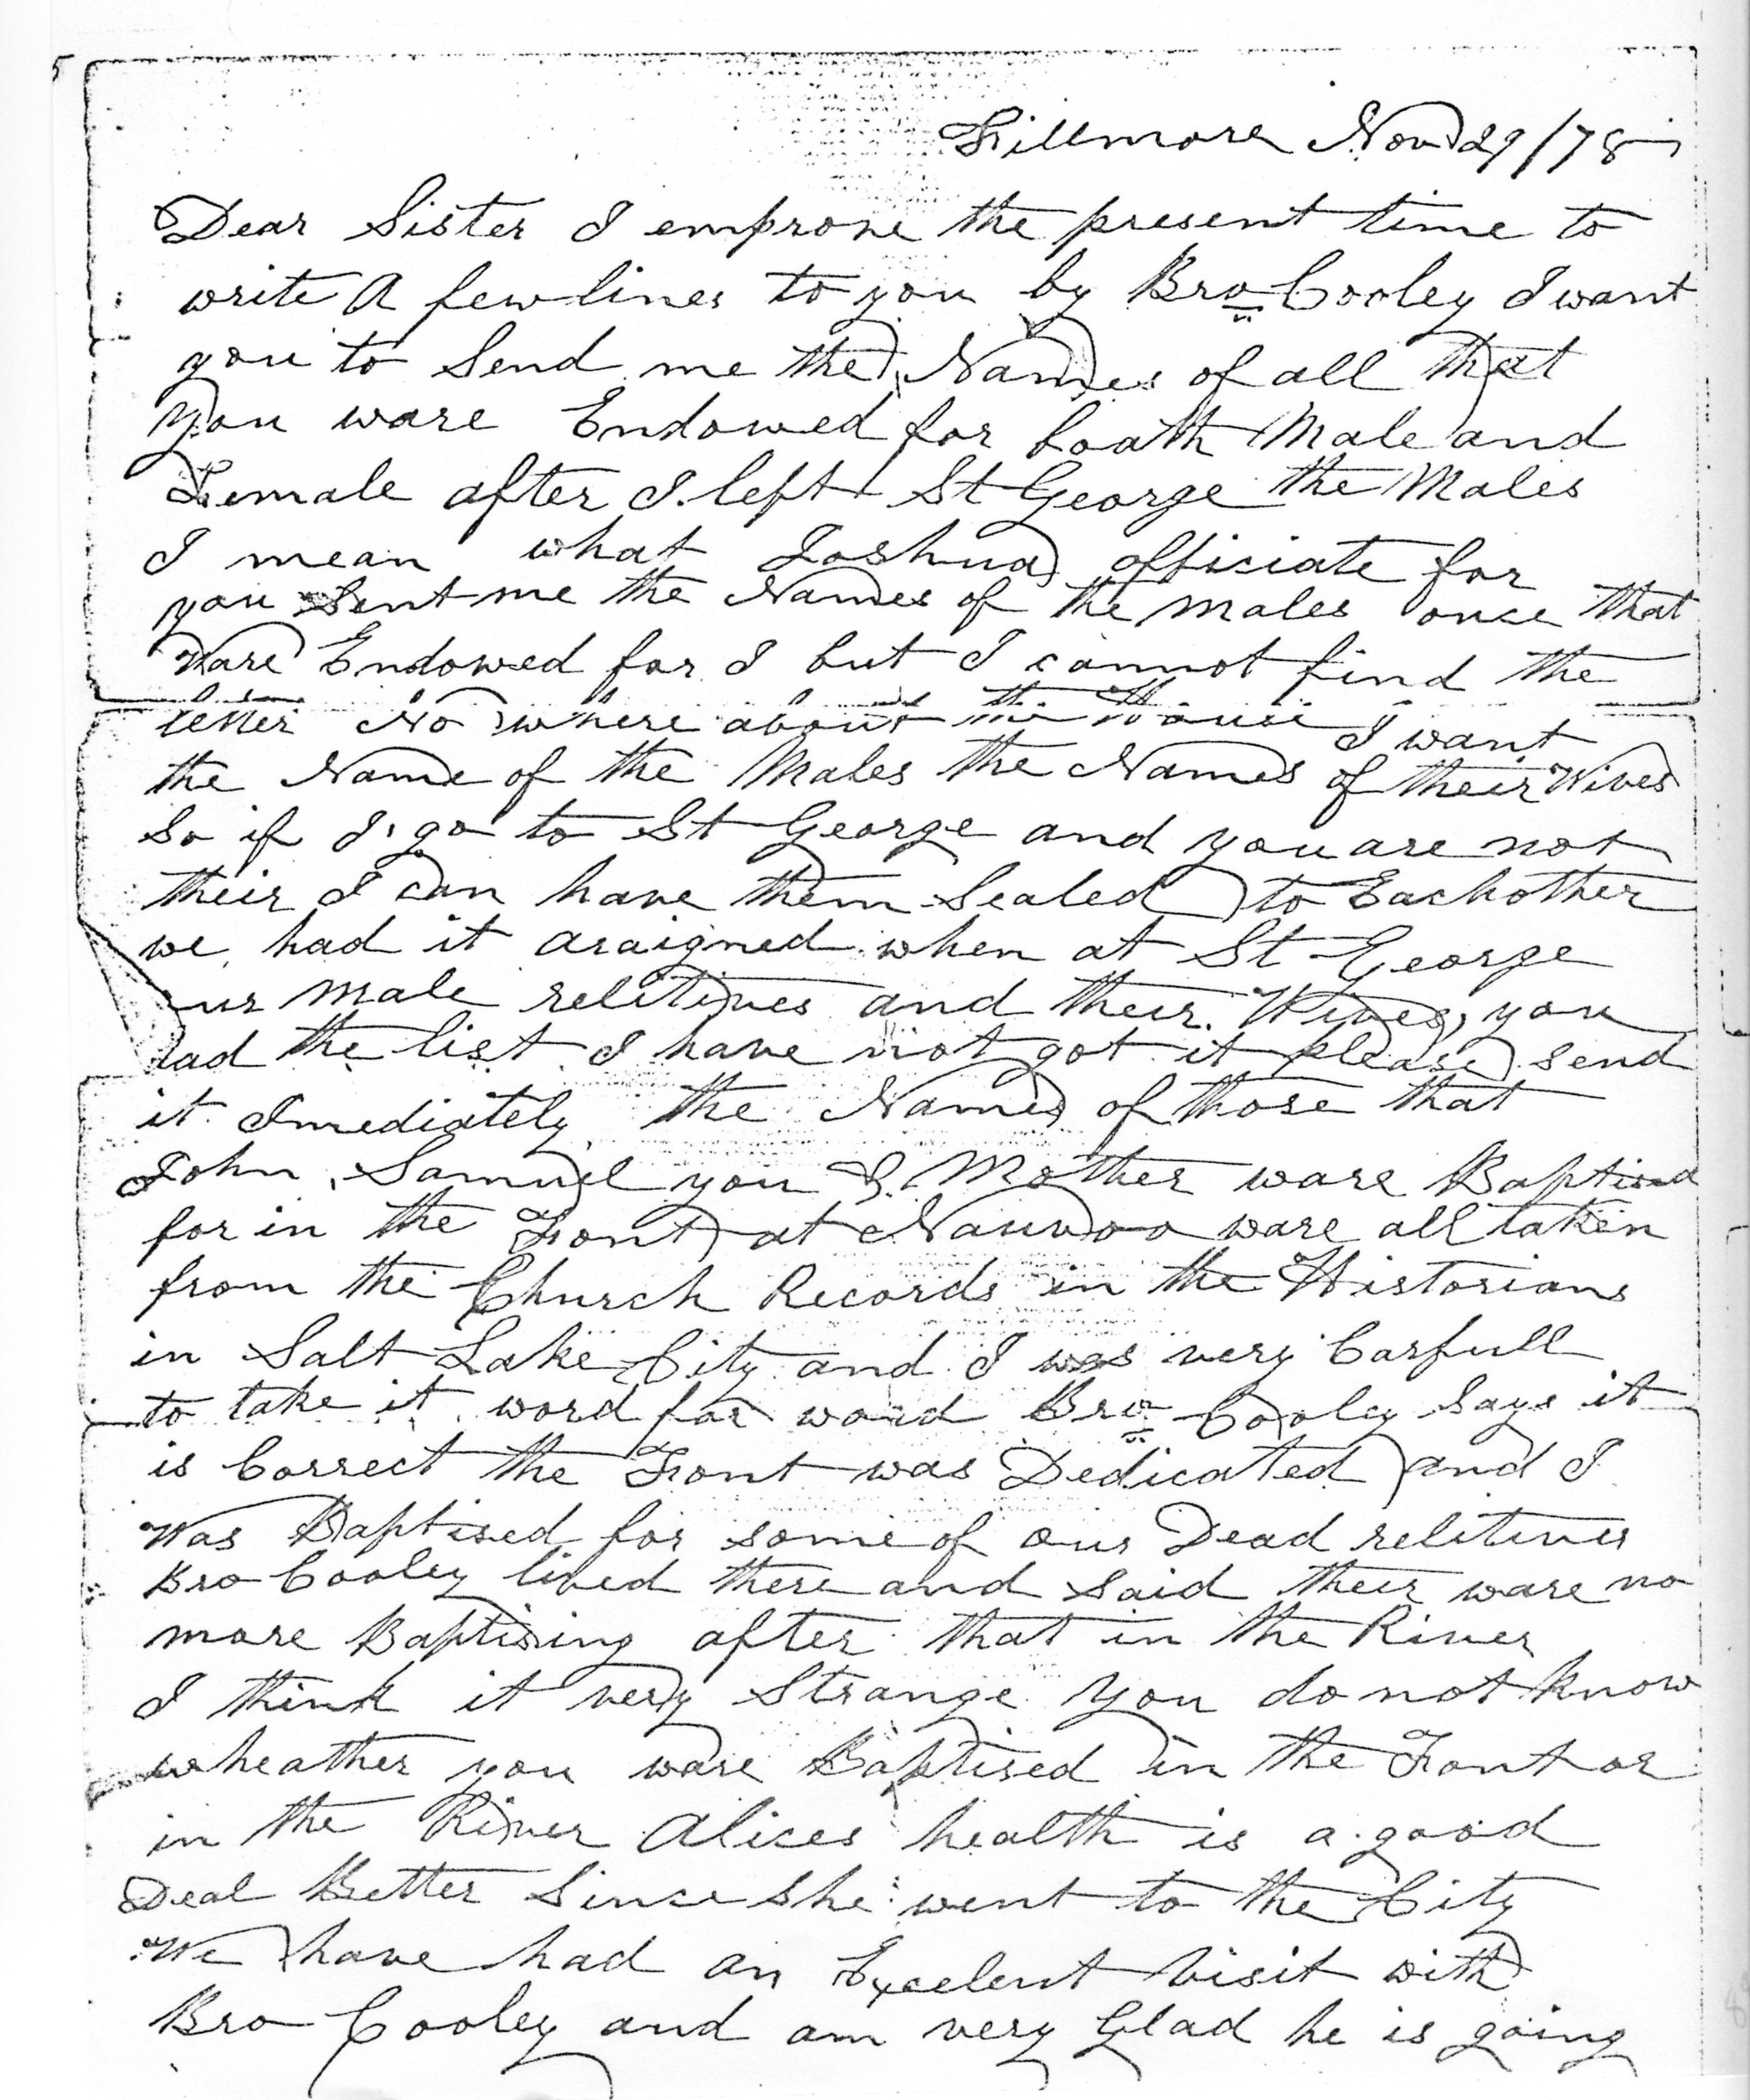 Fillmore Nov 29/78
Dear Sister I emprove the present time to
write A few lines to you by Bro Cooley I want
you to Send me the Names of all that
you ware Endowed for boath Male and
Female after I left St George the Males
I mean what Joshua officiate for
you Sent me the Names of the males once that
ware Endowed for I but I cannot find the
letter No where about the House I want
the Name of the Males the Names of their Wives
So if I go to St George and you are not
their I can have them Sealed to Eachother
we had it araigned when at St George
our male relitives and their Wives, you
had the list I have not got it please send
it Imediately the Names of those that
John, Samuel you & Mother ware Baptised
for in the Font at Nauvoo ware all taken
from the Church Records in the Historians
in Salt Lake City and I was very Carfull
to take it word for word Bro Cooley Says it
is Correct the Font was Dedicated and I
Was Baptised for some of our Dead relitives
Bro Cooley lived there and Said their ware no
more Baptising after that in the River
I think it very Strange you do not know
wheather you ware Baptised in the Font or
in the River Alices health is a good
Deal Better Since She went to the City
We have had an Excelent visit with
Bro Cooley and am very Glad he is going